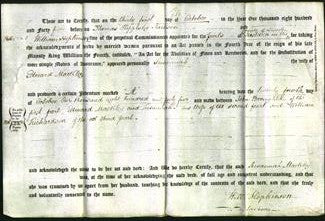 These are to Certify, that on the thirty first day of October in the year of our Lord one thousand eight hundred
and Forty five before
William Stephenson one of the perpetual Commissioners appointed for the for taking
the acknowledgments of deeds by married women pursuant to an Act passed in the Fourth Year of the reign of his
Majesty King William the Fourth, intituled, "An Act for the Abolition of Fines and Recoveries, and for the Substitution of
more simple Modes of Assurance," appeared personally Susannah
Edward Mackley
and produced a certain Indenture marked A bearing date the twenty fourth day
of October One thousand eight hundred and forty five and made between John of the
first part Edward Mackley and Susannah his wife of the second part and William
Richardson of the third part.
and acknowledged the same to be her act and deed: And We do hereby Certify, that the said Susannah Mackley
was, at the time of her acknowledging the said deed, of full age and competent understanding, and that
she was examined by us apart from her husband, touching her knowledge of the contents of the said deed, and that she freely
and voluntarily consented to the same.
Wm Stephenson